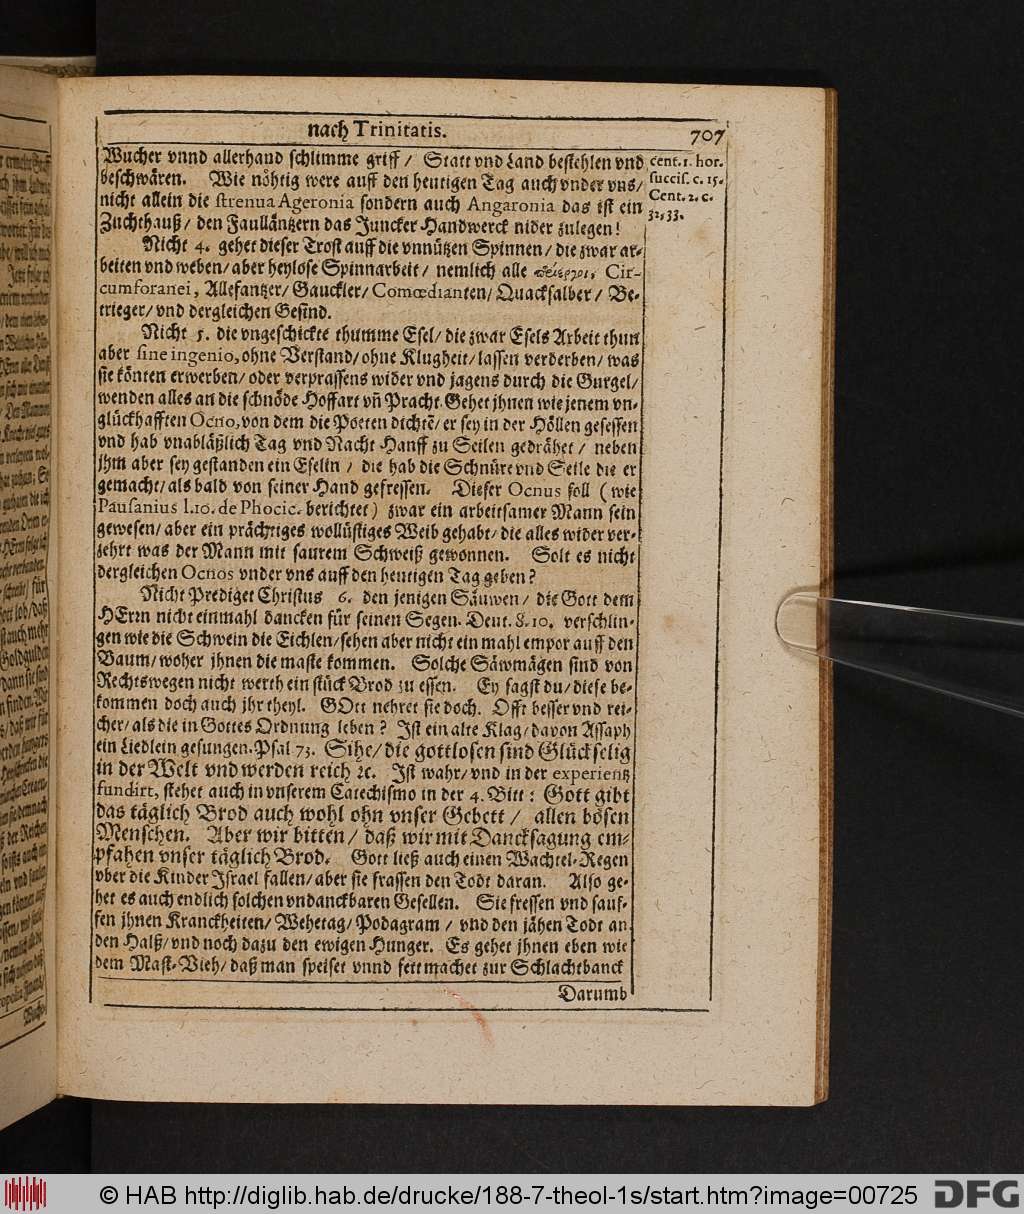 nach Trinitatis.
707
Wucher vnnd allerhand schlimme griff / Statt vnd Land bestehlen vnd
beschwären. Wie nöhtig were auff den heutigen Tag auch vnder vns/
nicht allein die strenua Ageronia sondern auch Angaronia das ist ein
Zuchthauß / den Faulläntzern das Juncker Handwerck nider zulegen!
cent. 1. hor.
succis. c. 15.
Cent. 2. c.
32. 33.
Nicht 4. gehet dieser Trost auff die vnnützen Spinnen / die zwar ar-
beiten vnd weben / aber heylose Spinnarbeit / nemlich alle Cir-
cumforanei, Allefantzer / Gauckler / Comœdianten / Quacksalber / Be-
trieger / vnd dergleichen Gesind.
Nicht 5. die vngeschickte thumme Esel / die zwar Esels Arbeit thun
aber sine ingenio, ohne Verstand / ohne Klugheit / lassen verderben / was
sie könten erwerben / oder verprassens wider vnd jagens durch die Gurgel /
wenden alles an die schnöde Hoffart vñ Pracht. Gehet jhnen wie jenem vn-
glückhafften Ocno, von dem die Poeten dichtē / er sey in der Höllen gesessen
vnd hab vnabläßlich Tag vnd Nacht Hanff zu Seilen gedrähet / neben
jhm aber sey gestanden ein Eselin / die hab die Schnüre vnd Seile die er
gemacht / als bald von seiner Hand gefressen. Dieser Ocnus soll ( wie
Pausanius l. 10. de Phocic. berichtet ) zwar ein arbeitsamer Mann sein
gewesen / aber ein prächtiges wollüstiges Weib gehabt / die alles wider ver-
zehrt was der Mann mit saurem Schweiß gewonnen. Solt es nicht
dergleichen Ocnos vnder vns auff den heutigen Tag geben?
Nicht Prediget Christus 6. den jenigen Säuwen / die Gott dem
HErrn nicht einmahl dancken für seinen Segen. Deut. 8. 10. verschlin-
gen wie die Schwein die Eichlen / sehen aber nicht ein mahl empor auff den
Baum / woher jhnen die maste kommen. Solche Säwmägen sind von
Rechtswegen nicht werth ein stück Brod zu essen. Ey sagst du / diese be-
kommen doch auch jhr theyl. GOtt nehret sie doch. Offt besser vnd rei-
cher / als die in Gottes Ordnung leben? Ist ein alte Klag / davon Assaph
ein Liedlein gesungen. Psal 73. Sihe / die gottlosen sind Glückselig
in der Welt vnd werden reich ꝛc. Ist wahr / vnd in der experientz
fundirt, stehet auch in vnserem Catechismo in der 4. Bitt: Gott gibt
das täglich Brod auch wohl ohn vnser Gebett / allen bösen
Menschen. Aber wir bitten / daß wir mit Dancksagung em-
pfahen vnser täglich Brod. Gott ließ auch einen Wachtel-Regen
vber die Kinder Israel fallen / aber sie frassen den Todt daran. Also ge-
het es auch endlich solchen vndanckbaren Gesellen. Sie fressen vnd sauf-
fen jhnen Kranckheiten / Wehetag / Podagram / vnd den jähen Todt an
den Halß / vnd noch dazu den ewigen Hunger. Es gehet jhnen eben wie
dem Mast-Vieh / daß man speiset vnnd fett machet zur Schlachtbanck
Darumb
© HAB http://diglib.hab.de/drucke/188-7-theol-1s/start.htm?image=00725
DFG